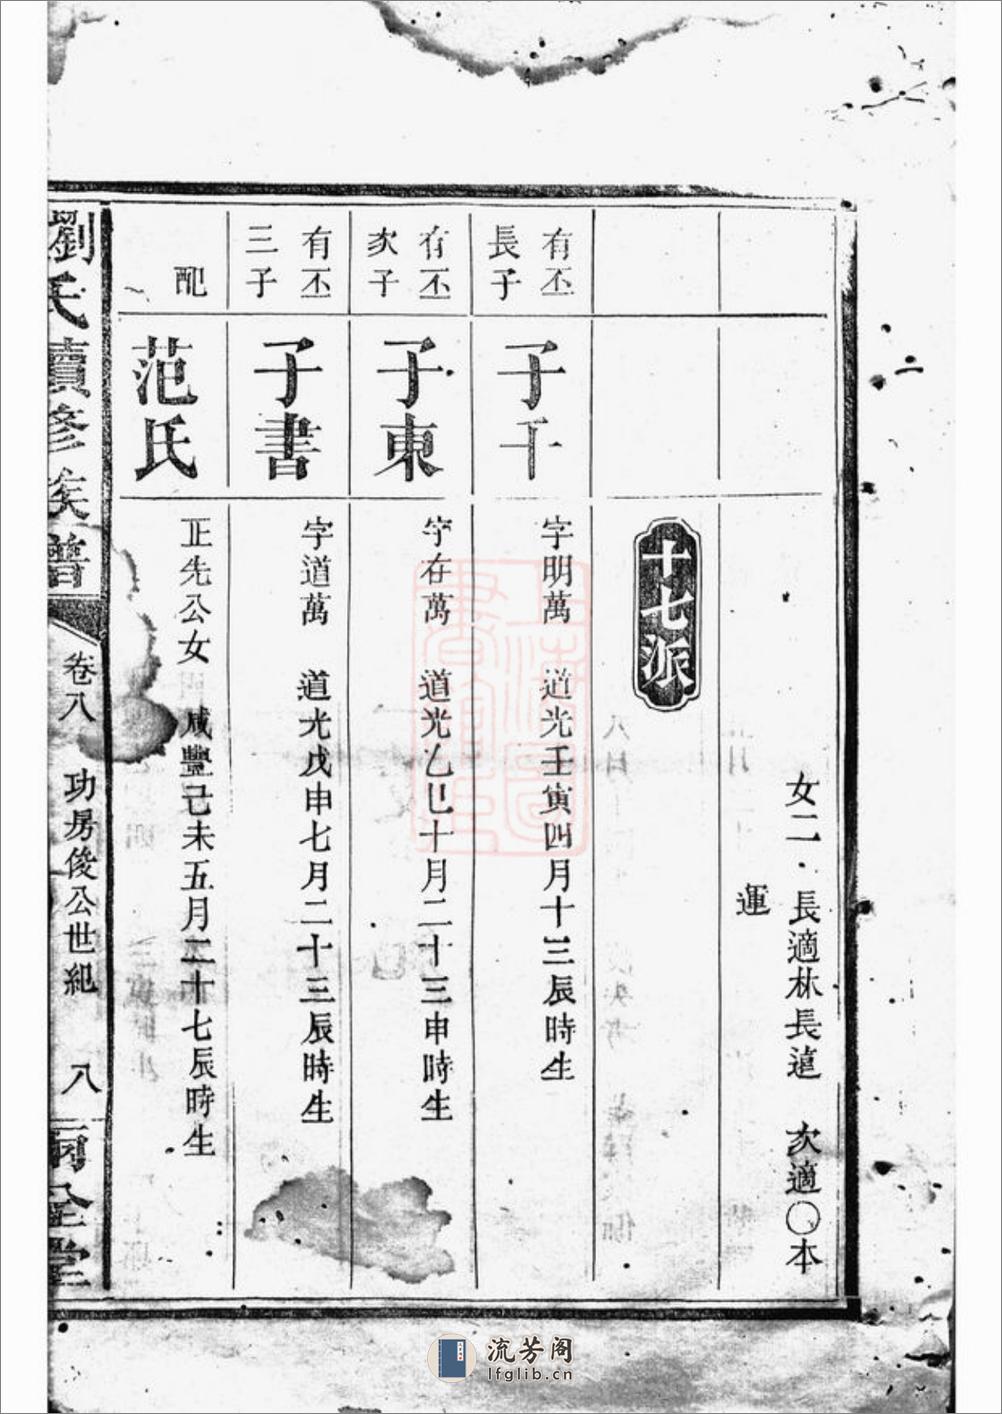 二
女二 長適林長遠 次適〇本
運
十七派
有丕
長子
子千
字明萬 道光壬寅四月十三辰時生
有丕
次子
子東
字存萬 道光乙巳十月二十三申時生
有丕
三子
子書
字道萬 道光戊申七月二十三辰時生
配
范氏
正先公女 咸豐己未五月二十七辰時生
劉氏續修族譜
卷八 功房俊公世紀 八
上海圖書館藏
流芳阁
lfglib.cn